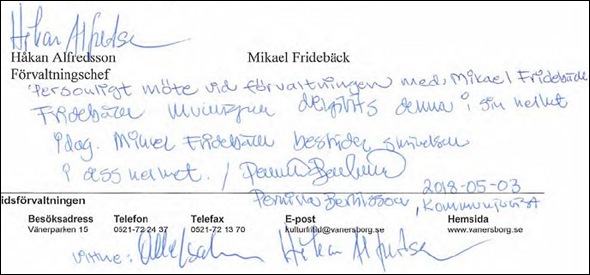 Håkan Alfredsson
Håkan Alfredsson Mikael Fridebäck
Förvaltningschef
Personligt möte vid förvaltningen med Mikael Fridebäck
Fridebäck delgivits denna i sin helhet
idag. Mikael Fridebäck bestrider skrivelsen
i dess helhet. /
Pernilla Bertilsson, 2018-05-03
Kommunjurist
idsförvaltningen
Besöksadress Telefon Telefax E-post Hemsida
Vänerparken 15 0521-72 24 37 0521-72 13 70 kulturfritid@vanersborg.se www.vanersborg.se
Vittne: Håkan Alfredsson